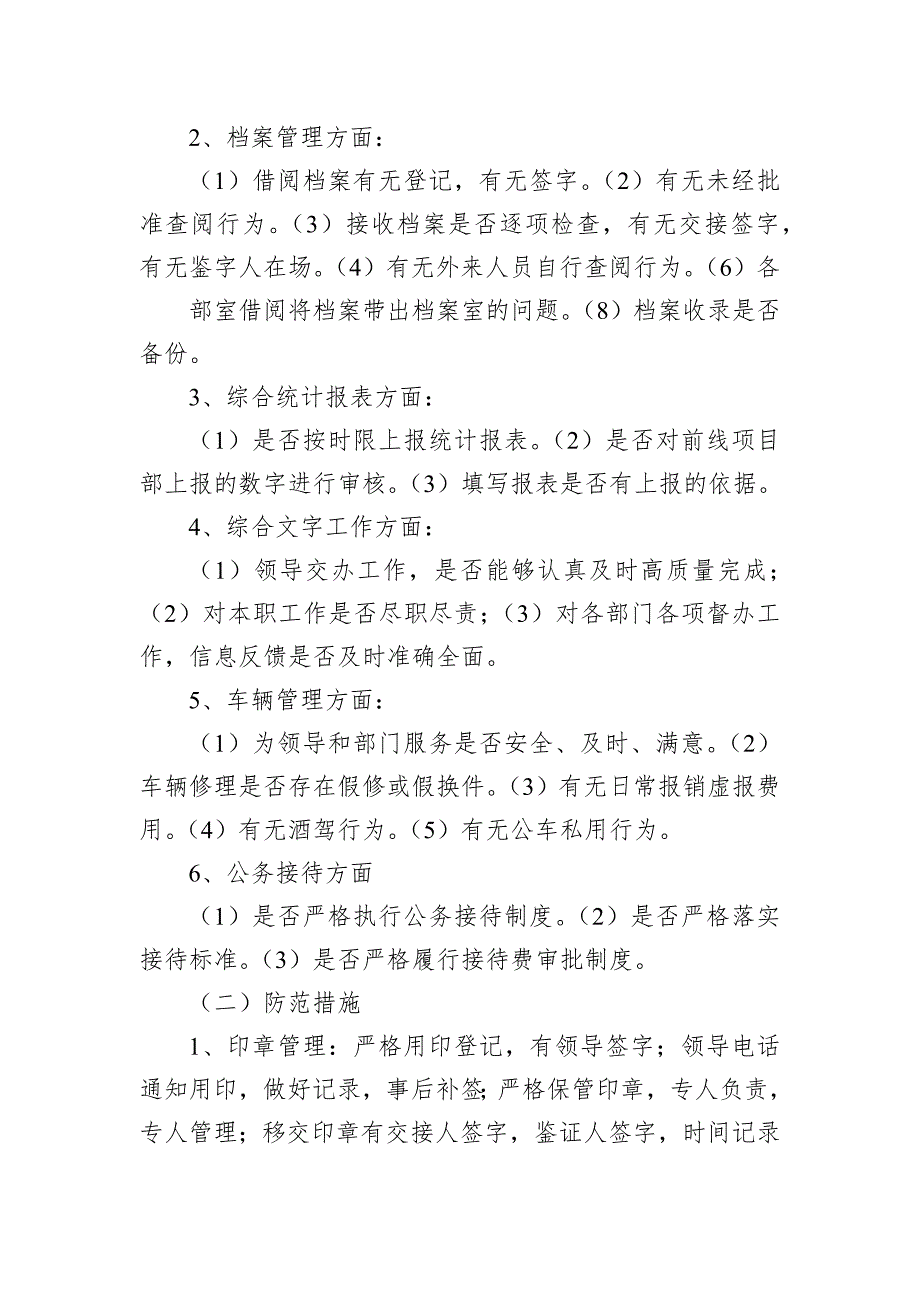 2、档案管理方面：
（1）借阅档案有无登记，有无签字。（2）有无未经批
准查阅行为。（3）接收档案是否逐项检查，有无交接签字，
有无鉴字人在场。（4）有无外来人员自行查阅行为。（6）各
部室借阅将档案带出档案室的问题。（8）档案收录是否
备份。
3、综合统计报表方面：
（1）是否按时限上报统计报表。（2）是否对前线项目
部上报的数字进行审核。（3）填写报表是否有上报的依据。
4、综合文字工作方面：
（1）领导交办工作，是否能够认真及时高质量完成；
（2）对本职工作是否尽职尽责；（3）对各部门各项督办工
作，信息反馈是否及时准确全面。
5、车辆管理方面：
（1）为领导和部门服务是否安全、及时、满意。（2）
车辆修理是否存在假修或假换件。（3）有无日常报销虚报费
用。（4）有无酒驾行为。（5）有无公车私用行为。
6、公务接待方面
（1）是否严格执行公务接待制度。（2）是否严格落实
接待标准。（3）是否严格履行接待费审批制度。
（二）防范措施
1、印章管理：严格用印登记，有领导签字；领导电话
通知用印，做好记录，事后补签；严格保管印章，专人负责，
专人管理；移交印章有交接人签字，鉴证人签字，时间记录